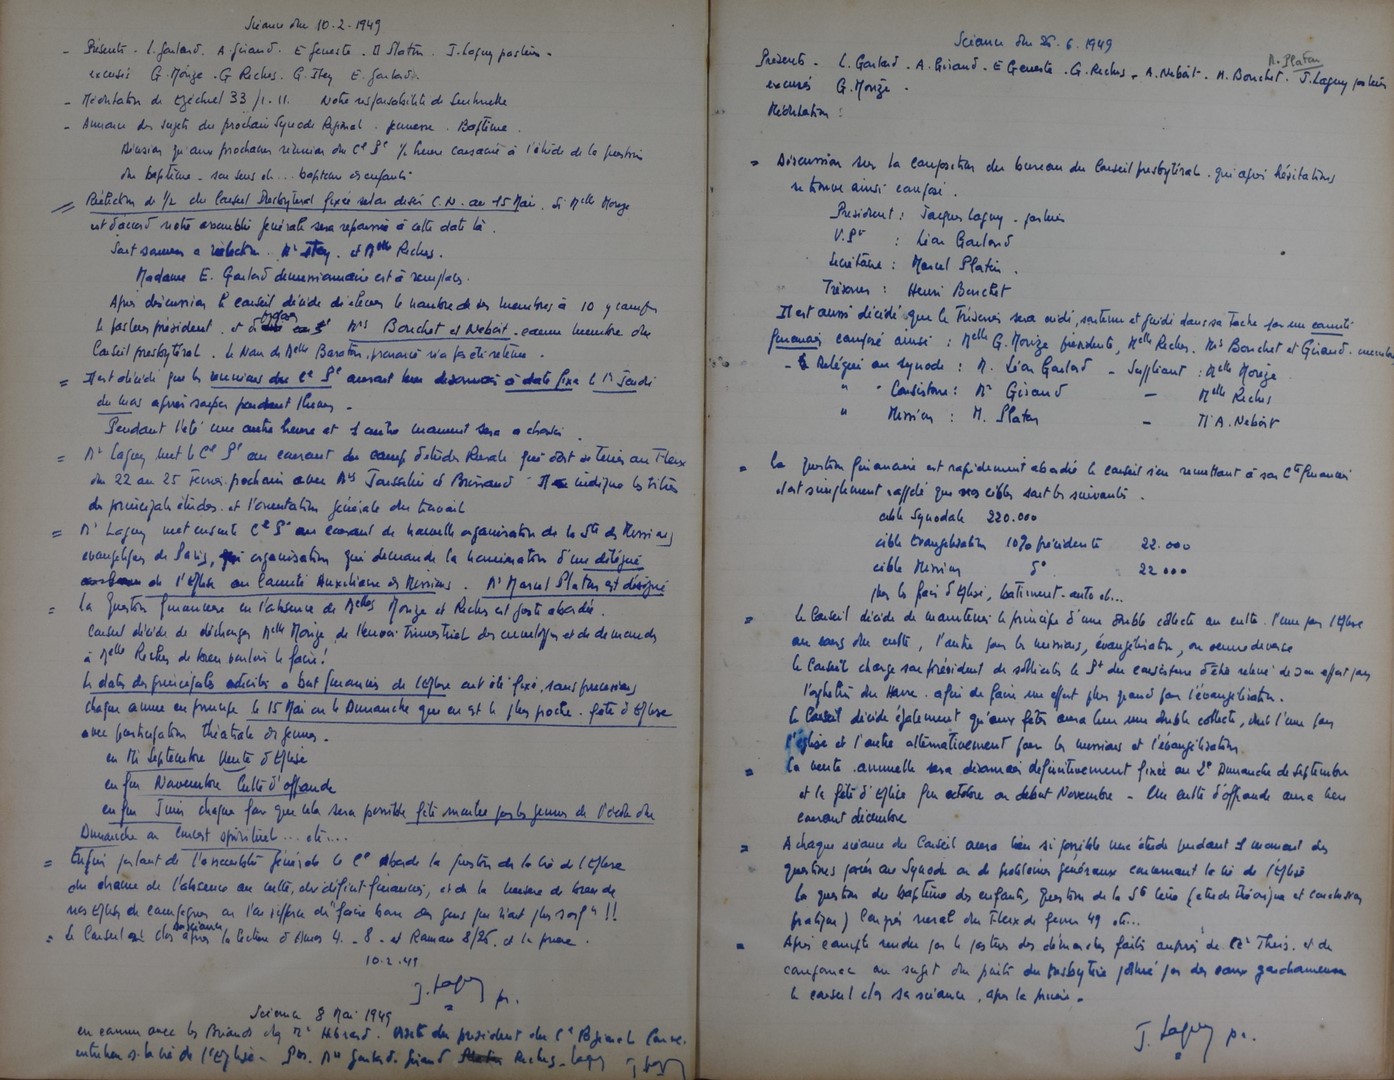 Séance du 10.2.1949
- Présents - L. Gaulard. A. Giraud. E Geneste. M Platon. J. Laguy pasteur -
excusés G. Morize - G Riches. G. Itey E. Gaulard
- Méditation de Ezéchiel 33 / 1-11. Notre responsabilité de Sentinelle
- Annonce des sujets du prochain Synode Régional. jeunesse. Baptême.
Décision qu'aux prochaines réunion du Cl Pl ½ heure consacrée à l'étude de la question
du baptême - son sens et... baptême des enfants
Réélection d ½ du Conseil Presbytéral fixée selon désir C.N. au 15 Mai. Si Melle Morize
est d'accord notre assemblée générale sera repoussée à cette date là.
Sont soumis a réélection. Mr Itey. et Melle Riches.
Madame E. Gaulard démissionnaire est à remplacer.
Après discussion le conseil décide d'élever le nombre de ses membres à 10 y compris
le pasteur président. et Mrs Bouchet et Neboit. comme membre du
Conseil presbytéral. le Nom de Melle Baraton, prononcé n'a pas été retenu.
= Il est décidé que les réunions du Cl Pl auront lieu désormais à date fixe le 1er Jeudi
du mois après souper pendant l'hiver -
Pendant l'été une autre heure et 1 autre moment sera a choisir.
= Mr Laguy met le Cl Pl au courant du camp d'études Rurale qui doit se tenir au Fleix
du 22 au 25 Février prochain avec Mrs et indique les titres
des principales études et l'orientation générale du travail
= Mr Laguy met ensuite Cl Pl au courant de nouvelle organisation de la Sté des Missions
évangéliques de Paris, organisation qui demande la nomination d'un délégué
de l'Eglise au Comité Auxiliaire des Missions. Mr Marcel Platon est désigné
= la Question financière en l'absence de Melles Morize et Riches est juste abordée.
Conseil décide de décharger Melle Morize de l'envoi trimestriel des enveloppes et de demander
à Melle Riches de bien vouloir le faire!
la date des principales activités a but financier de l'Eglise ont été fixé, sans précisions
chaque année en principe le 15 Mai ou le Dimanche qui en est le plus proche. fête d'Eglise
avec participation théâtrale des jeunes -
en Mi Septembre Vente d'Eglise
en fin Novembre Culte d'offrande
en fin Juin chaque fois que cela sera possible fête montée par les jeunes de l'école du
Dimanche ou concert spirituel... etc...
= Enfin parlant de l'assemblée générale le Cl aborde la question de la vie de l'Eglise
du drame de l'absence au culte, du déficit financier, et de la mesure de bien de
nos Eglises de campagnes où l'on s'efforce de "faire boire des gens qui n'ont plus soif" !!
= le Conseil est clos après la lecture d'Amos 4. - 8 - et Romain 8/26, et la prière.
10.2.49
J. Laguy pr.
Séance 8 Mai 1949
en commun avec les Briands chez Mr Hibrard. visite du président du Cl Régional
entretien s. la vie de l'Eglise - Prés. Mrs Gaulard. Giraud Riches - Laguy J. Laguy
Séance du 26.6.1949
M. Platon
Présents - L. Gaulard - A. Giraud - E Geneste - G. Riches - A. Neboit - H. Bouchet. J. Laguy pasteur
excusés G. Morize -
Méditation :
= Discussion sur la composition du bureau du Conseil presbytéral. qui après hésitations
se trouve ainsi composé.
Président : Jacques Laguy - pasteur
V. Pt : Léon Gaulard
Secrétaire : Marcel Platon.
Trésorier : Henri Bouchet
Il est aussi décidé que le Trésorier sera aidé, soutenu et guidé dans sa tache par un comité
financier composé ainsi : Melle G. Morize présidente, Melle Riches. Mrs Bouchet et Giraud. membres
- Délégué au synode : M. Léon Gaulard - Suppléant : Melle Morize
" " Consistoire : Mr Giraud - Melle Riches
" Mission : M. Platon - M A. Neboit
= la question financière est rapidement abordée le conseil s'en remettant à son Cté financier
Il est simplement rappelé que nos cibles sont les suivantes.
cible Synodale 220.000
cible Evangélisation 10% précédente 22.000
cible Mission d° 22 000
plus les frais d'Eglise, batiment - auto etc...
= le Conseil décide de maintenir le principe d'une double collecte au culte. l'une pour l'Eglise
au cours du culte, l'autre pour les missions, évangélisation, ou oeuvre diverse
le Conseil charge son président de solliciter le Pt du consistoire d'être relevé de son effort pour
l'orphelin du Havre. afin de faire un effort plus grand pour l'évangélisation.
le Conseil décide également qu'aux fêtes aura lieu une double collecte, dont l'une pour
l'église et l'autre alternativement pour les missions et l'évangélisation
= La vente annuelle sera désormais définitivement fixée au 2e Dimanche de Septembre
et la fête d'Eglise fin octobre ou début Novembre - Un culte d'offrande aura lieu
courant décembre
= A chaque séance du Conseil aura lieu si possible une étude pendant 1 moment des
questions posées au Synode ou de problèmes généraux concernant la vie de l'Eglise
la question du baptême des enfants, Question de la Ste Cène (étude théorique et conclusion
pratique) Congrès rural du Fleix de février 49 etc...
= Après compte rendu par le pasteur des démarches faits auprès de Theis. et de
au sujet du puits du presbytère pollué par des eaux
le conseil clos sa séance, après la prière.
J. Laguy pr.